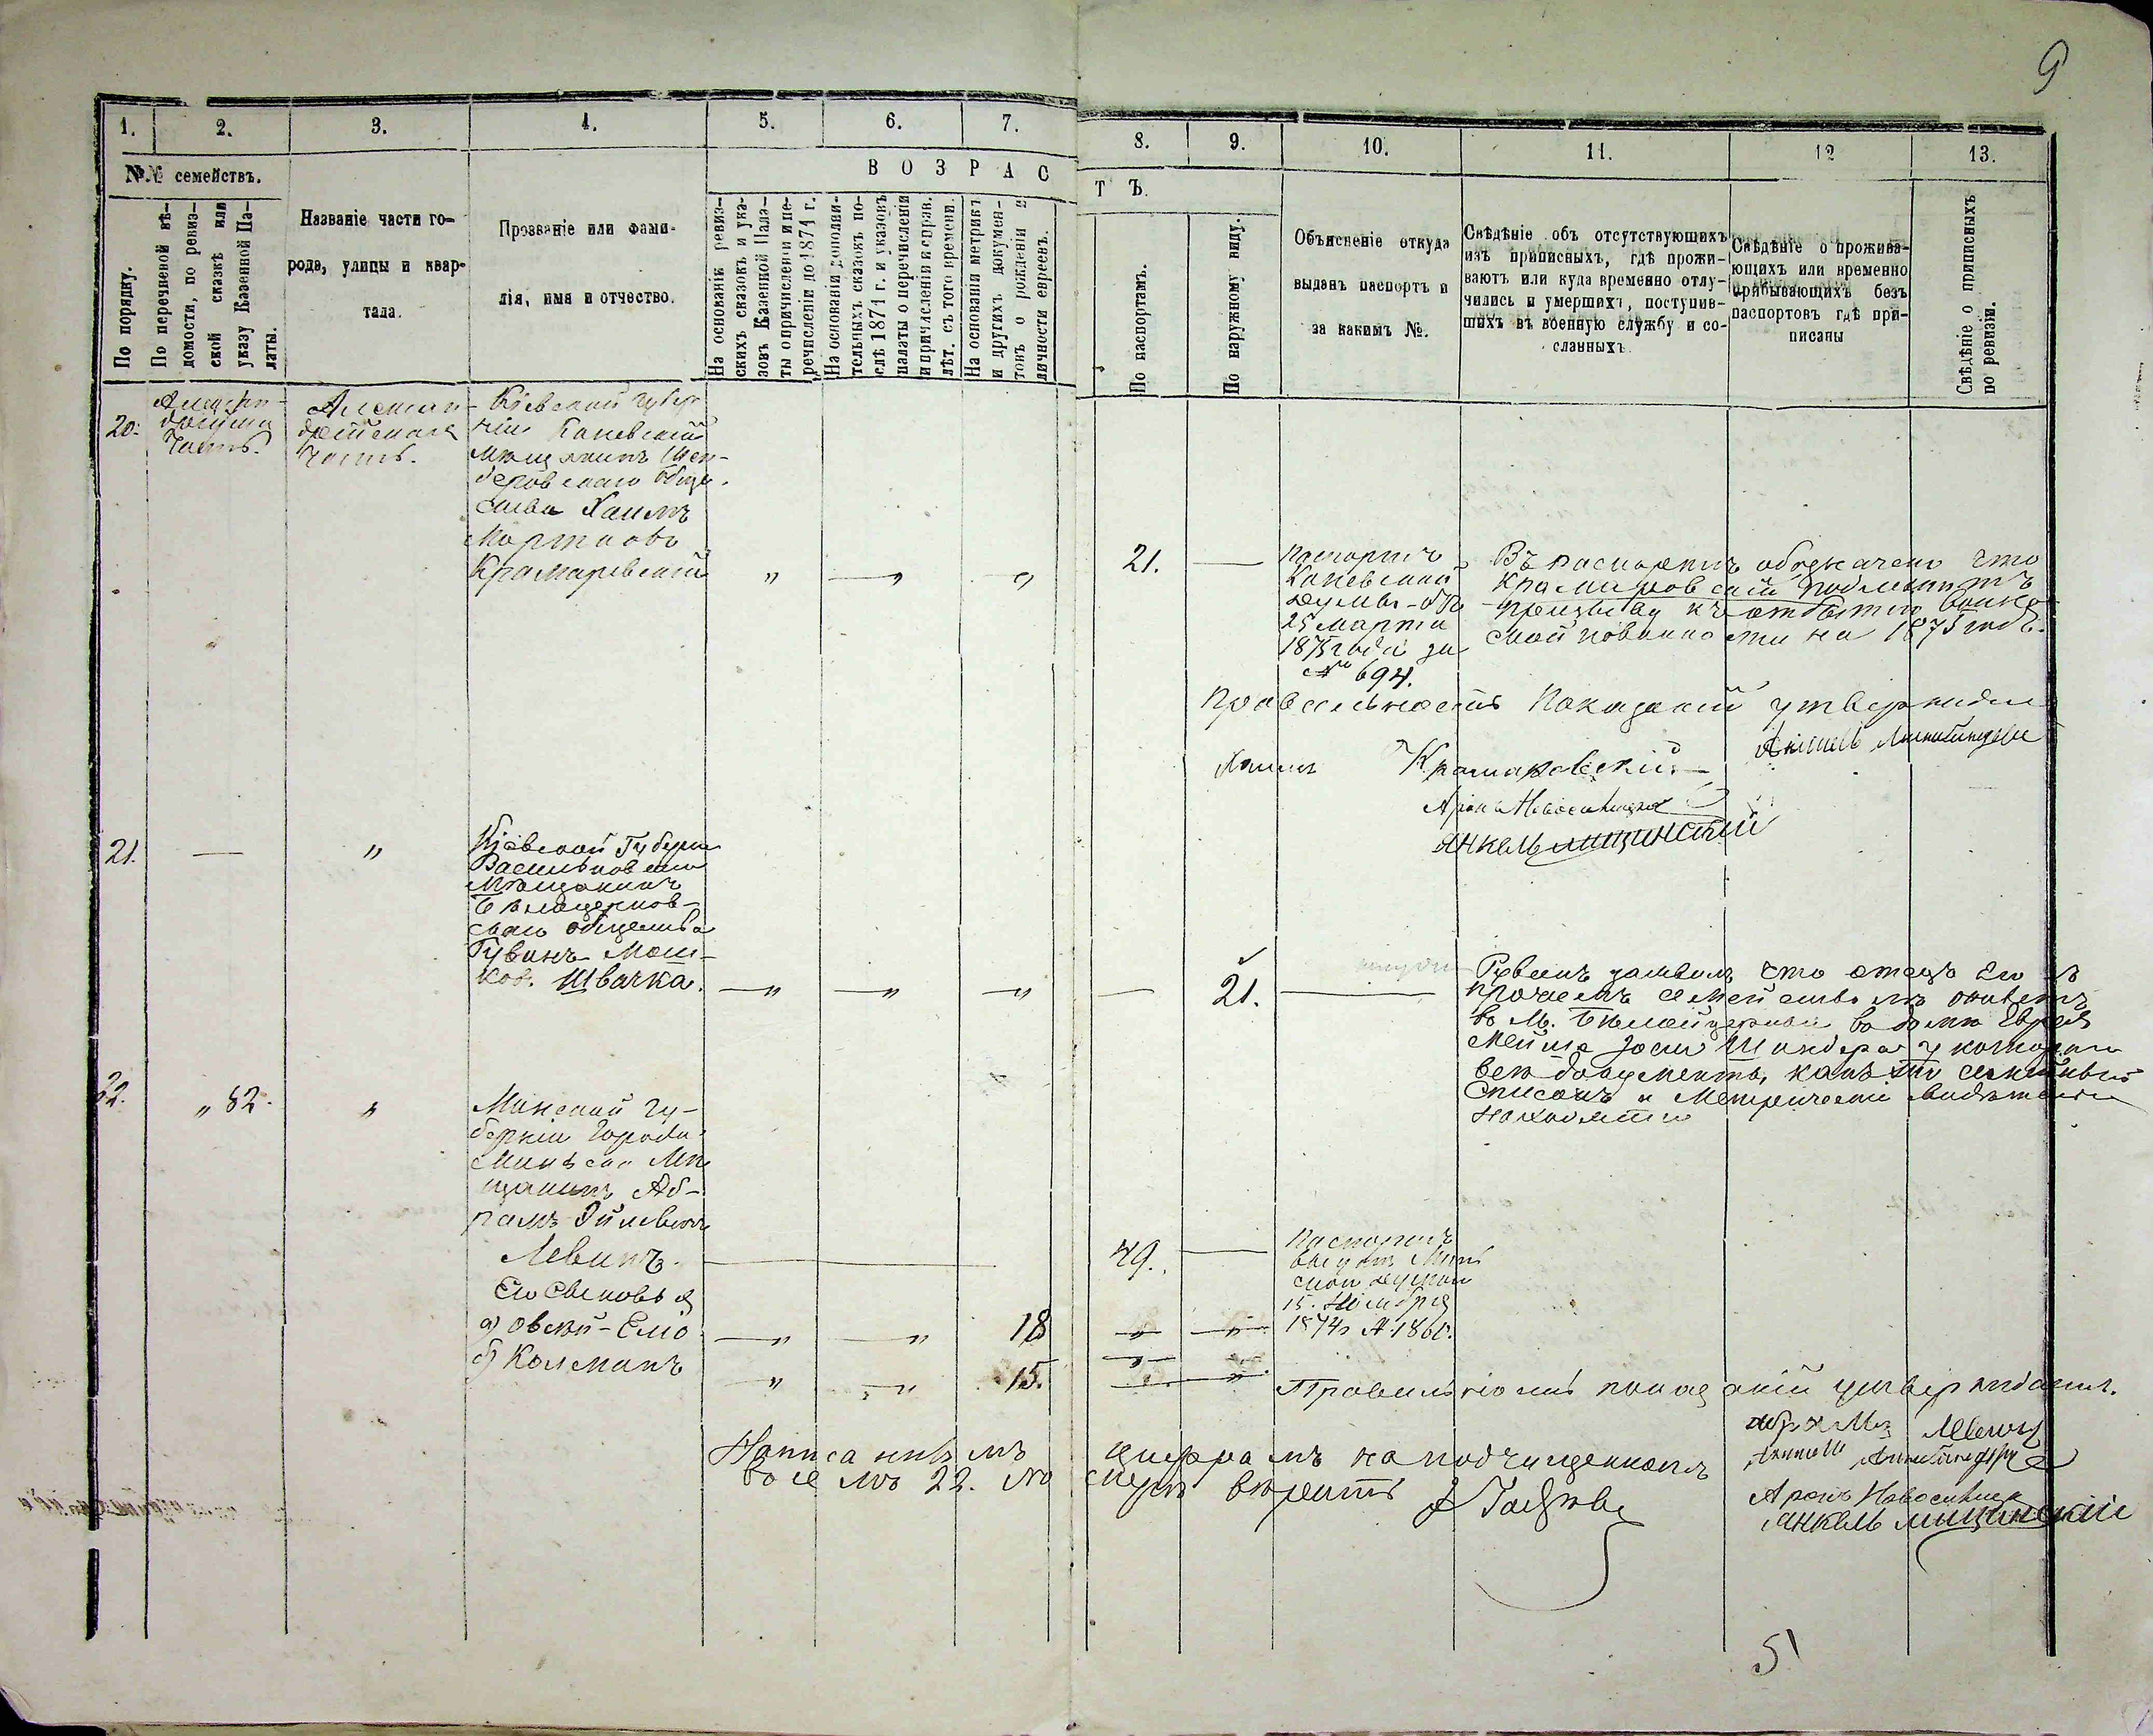 9
1.
2.
3.
4.
5.
6.
7.
8.
9.
10.
11.
12
13.
№№ семействъ.
По порядку.
По перечневой вѣ-
домости, по ревиз-
ской сказкѣ или
указу Казенной Па-
латы.
Названіе части го-
рода, улицы и квар-
тала.
Прозваніе или фами-
лія, имя и отчество.
ВОЗРАС
ТЪ.
На основаніи ревиз-
скихъ сказокъ и ука-
зовъ Казенной Пала-
ты о причисленіи и пе-
речисленіи до 1874 г.
На основаніи дополни-
тельныхъ сказокъ по-
слѣ 1874 г. и указовъ
палаты о перечисленіи
и причисленіи к справ.
лѣт. съ того времени.
На основаніи метрикъ
и другихъ докумен-
товъ о рожденіи и
личности евреевъ.
По паспортамъ.
По наружному виду.
Объясненіе откуда
выданъ паспортъ и
за какимъ №.
Свѣдѣніе объ отсутствующихъ
изъ приписныхъ, гдѣ прожи-
ваютъ или куда временно отлу-
чились и умершихъ, поступив-
шихъ въ военную службу и со-
сланныхъ
Свѣдѣніе о прожива-
ющихъ или временно
прибывающихъ безъ
паспортовъ гдѣ при-
писаны
Свѣдѣніе о приписныхъ
по ревизіи.
20.
часть.
Алексан-
дрійская
часть.
Кіевской Губер-
ніи Каневскій
мѣщанинъ Шен-
деровскаго обще-
ства Хаимъ
Мортковъ
Крамаревскій
" — " "
21. —
Паспортъ
Каневской
Думы отъ
25 марта
1875 года за
№ 694.
Въ паспортѣ обозначено что
Крамаровскій подлежитъ
призыву къ отбытію воин-
ской повинности на 1875 годъ.
Правильность показаній утверждаю
Хаимъ Крамаровскій
Аронъ
Анкель Мицинскій
21.
—
"
Кіевской Губерніи
Васильковскій
Мѣщанинъ
Бѣлоцерков-
скаго общества
Рувинъ Мош-
ков. Швачка.
— " — " — "
—
21.
—
Рувинъ заявилъ что отецъ его съ
прочемъ семействомъ живетъ
въ М. Бѣлой церкви въ домѣ Еврея
Шиндера у котораго
всѣ документы, какъ то семейный
списокъ и метрическіе свидѣтельства
находятся
22.
" 82.
"
Минской Гу-
берніи города
Минска Мѣ-
щанинъ Аб-
рамъ
Левинъ.
Его сыновья
а) Овсѣй-Еліо
б) Колманъ
49. —
Паспортъ
выданъ Мин-
ской думой
15. Ноября
1874 г № 1860.
— " — " 18
— " — "
— " — " 15.
— "
Правильность показаній утверждаемъ.
Абрамъ Левинъ
Аронъ
Анкель Мицинскій
Написаннымъ
цифрамъ на подчищенномъ
всемъ 22. №
вѣрить
51